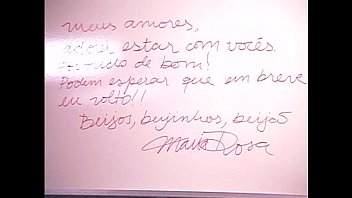 meus amores,
adorei estar com vocês.
tudo de bom!
Podem esperar que em breve
eu volto!!
Beijos, beijinhos, beijão
Maria Rosa